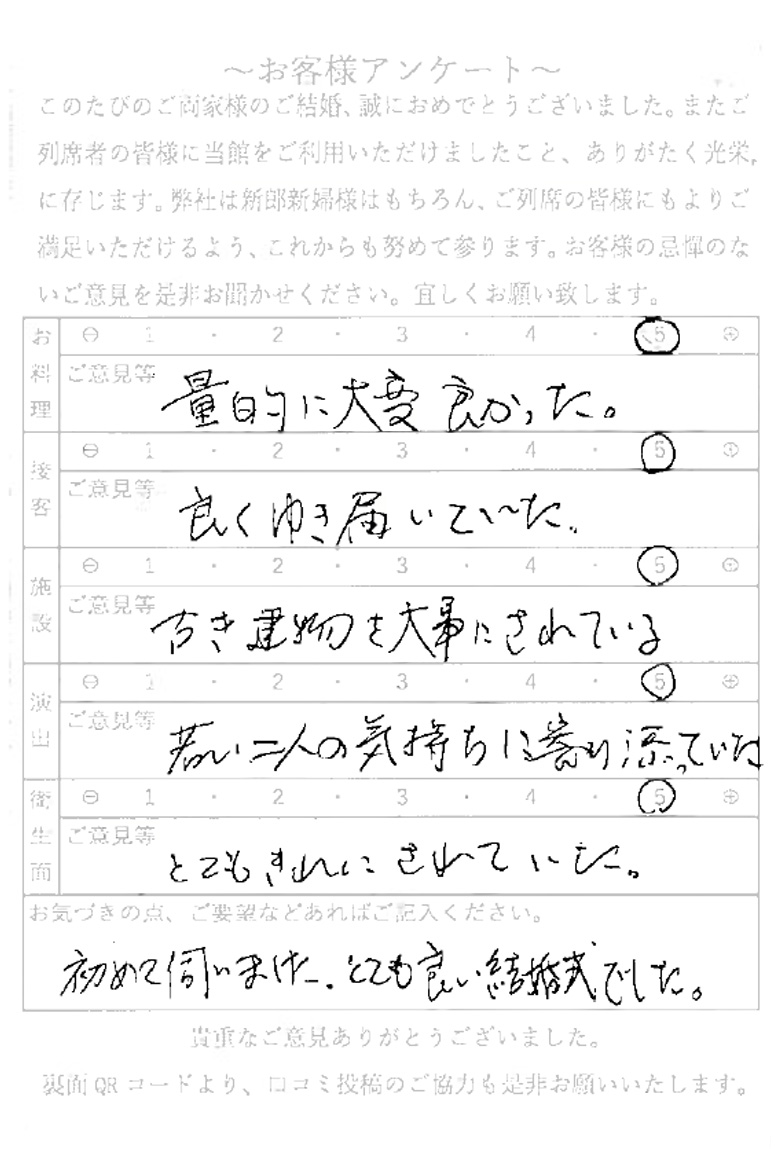 ～お客様アンケート～
このたびのご両家様のご結婚、誠におめでとうございました。またご
列席者の皆様に当館をご利用いただけましたこと、ありがたく光栄
に存じます。弊社は新郎新婦様はもちろん、ご列席の皆様にもよりご
満足いただけるよう、これからも努めて参ります。お客様の忌憚のな
いご意見を是非お聞かせください。宜しくお願い致します。
お料理 ⊖ 1 ・ 2 ・ 3 ・ 4 ・ 5 ⊕
ご意見等 量的に大変良かった。
接客 ⊖ 1 ・ 2 ・ 3 ・ 4 ・ 5 ⊕
ご意見等 良くゆき届いていた。
施設 ⊖ 1 ・ 2 ・ 3 ・ 4 ・ 5 ⊕
ご意見等 古き建物を大事にされている
演出 ⊖ 1 ・ 2 ・ 3 ・ 4 ・ 5 ⊕
ご意見等 若い二人の気持ちに寄り添っていた
衛生面 ⊖ 1 ・ 2 ・ 3 ・ 4 ・ 5 ⊕
ご意見等 とてもきれいにされていた。
お気づきの点、ご要望などあればご記入ください。
初めて伺いました。とても良い結婚式でした。
貴重なご意見ありがとうございました。
裏面 QR コードより、口コミ投稿のご協力も是非お願いいたします。